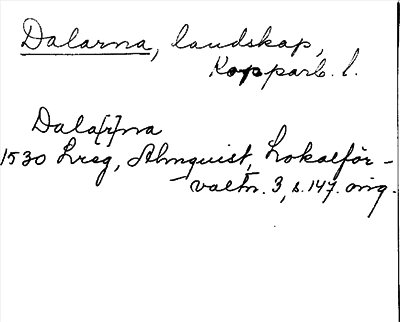 Dalarna, landskap,
Kopparb. l.
Dala[r]na
1530 Lreg, Almquist, Lokalför-
valtn. 3, s. 147. orig.